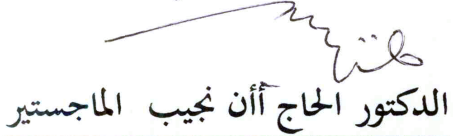 الدكتور الحاج أأن نجيب الماجستير